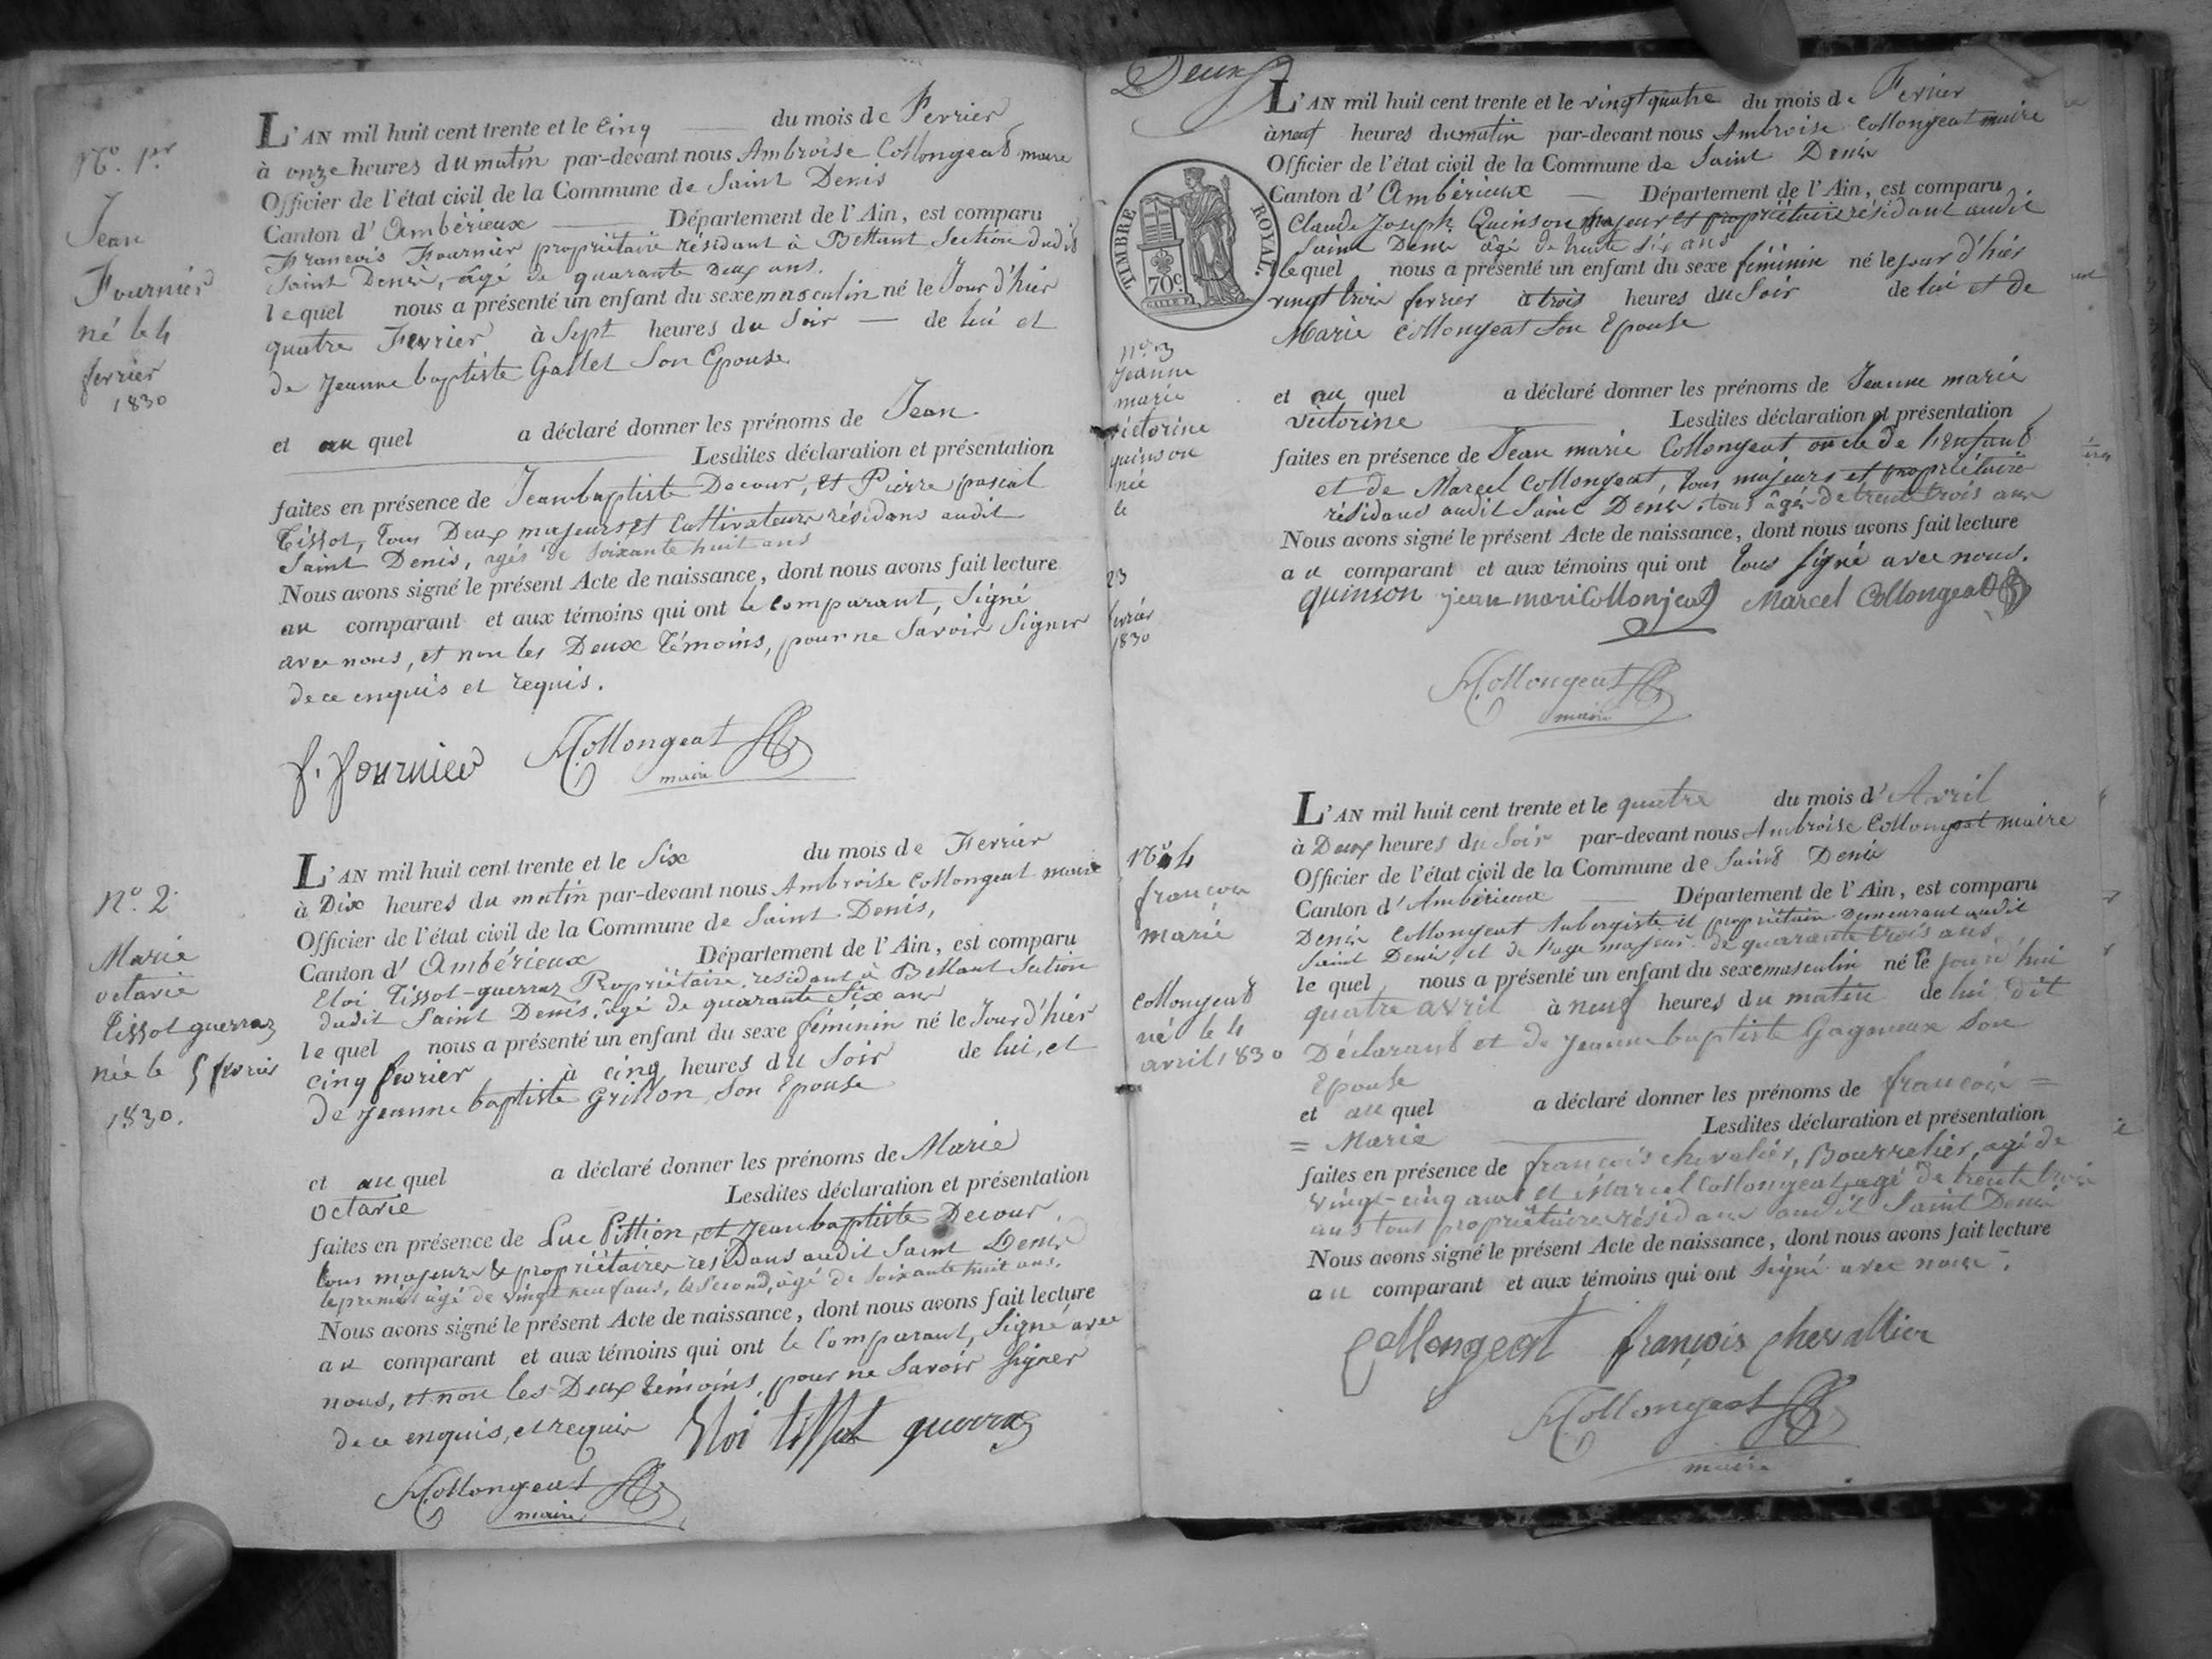 N.o 1.er
Jean
Fournier
né le 4
fevrier
1830
L'AN mil huit cent trente et le Cinq du mois de Fevrier
à onze heures du matin par-devant nous Ambroise Collongeat maire
Officier de l'état civil de la Commune de Saint Denis
Canton d'Ambérieux Département de l'Ain, est comparu
François Fournier propriétaire résidant à Bettant Section dudit
Saint Denis, âgé de quarante Deux ans.
lequel nous a présenté un enfant du sexe masculin né le Jour d'hier
quatre Fevrier à Sept heures du Soir — de lui et
de Jeanne baptiste Gallet Son Epouse
et au quel a déclaré donner les prénoms de Jean
Lesdites déclaration et présentation
faites en présence de Jean baptiste Decour, et Pierre pascal
Tissot, tous Deux majeurs et Cultivateurs résidans audit
Saint Denis, agés de Soixante huit ans
Nous avons signé le présent Acte de naissance, dont nous avons fait lecture
au comparant et aux témoins qui ont le Comparant, Signé
avec nous, et non les Deux témoins, pour ne Savoir Signer
de ce enquis et requis.
f. fournier Collongeat
maire
N.o 2.
Marie
octavie
tissot guerraz
née le 5 fevrier
1830.
L'AN mil huit cent trente et le Six du mois de Fevrier
à Dix heures du matin par-devant nous Ambroise Collongeat maire
Officier de l'état civil de la Commune de Saint Denis,
Canton d'Ambérieux Département de l'Ain, est comparu
Eloi Tissot-guerraz Propriétaire, residant à Bettant Section
dudit Saint Denis, âgé de quarante Six ans
lequel nous a présenté un enfant du sexe féminin né le Jour d'hier
cinq fevrier à cinq heures du Soir de lui, et
de Jeanne baptiste Grillon, Son Epouse
et au quel a déclaré donner les prénoms de Marie
octavie Lesdites déclaration et présentation
faites en présence de Luc Pittion, et Jean baptiste Decour,
tous majeurs & propriétaires residans audit Saint Denis
le premier âgé de vingt neuf ans, le Second, âgé de Soixante huit ans.
Nous avons signé le présent Acte de naissance, dont nous avons fait lecture
au comparant et aux témoins qui ont le Comparant, Signé avec
nous, et non les Deux témoins, pour ne Savoir Signer
de ce enquis, et requis Eloi tissot guerraz
Collongeat
maire
Deux
TIMBRE ROYAL.
70c.
N.o 3
Jeanne
marie
victorine
quinson
née
le
23
fevrier
1830
L'AN mil huit cent trente et le vingt quatre du mois de Fevrier
à neuf heures du matin par-devant nous Ambroise Collongeat maire
Officier de l'état civil de la Commune de Saint Denis
Canton d'Ambérieux — Département de l'Ain, est comparu
Claude Joseph Quinson majeur et propriétaire résidant audit
Saint Denis âgé de trente six ans
lequel nous a présenté un enfant du sexe féminin né le jour d'hier
vingt trois fevrier à trois heures du Soir de lui et de
Marie Collongeat Son Epouse
et au quel a déclaré donner les prénoms de Jeanne marie
victorine Lesdites déclaration et présentation
faites en présence de Jean marie Collongeat oncle de l'enfant
et de Marcel Collongeat, tous majeurs et propriétaire
résidans audit Saint Denis, tous âgés de trente trois ans
Nous avons signé le présent Acte de naissance, dont nous avons fait lecture
au comparant et aux témoins qui ont tous Signé avec nous.
quinson jean mari Collonjeat Marcel Collongeat
Collongeat
maire
N.o 4
françois
marie
Collongeat
né le 4
avril 1830
L'AN mil huit cent trente et le quatre du mois d'Avril
à Deux heures du Soir par-devant nous Ambroise Collongeat maire
Officier de l'état civil de la Commune de Saint Denis
Canton d'Ambérieux — Département de l'Ain, est comparu
Denis Collongeat Aubergiste et propriétaire Demeurant audit
Saint Denis, et de l'age majeur de quarante trois ans
le quel nous a présenté un enfant du sexe masculin né le jourd'hui
quatre avril à neuf heures du matin de lui dit
Déclarant et de Jeanne baptiste Gagneux Son
Epouse
et au quel a déclaré donner les prénoms de françois =
= Marie Lesdites déclaration et présentation
faites en présence de françois chevalier, Bourrelier, agé de
vingt-cinq ans et Marcel Collongeat, agé de trente trois
ans tous propriétaires résidans audit Saint Denis
Nous avons signé le présent Acte de naissance, dont nous avons fait lecture
au comparant et aux témoins qui ont Signé avec nous.
Collongeat françois Chevallier
Collongeat
maire